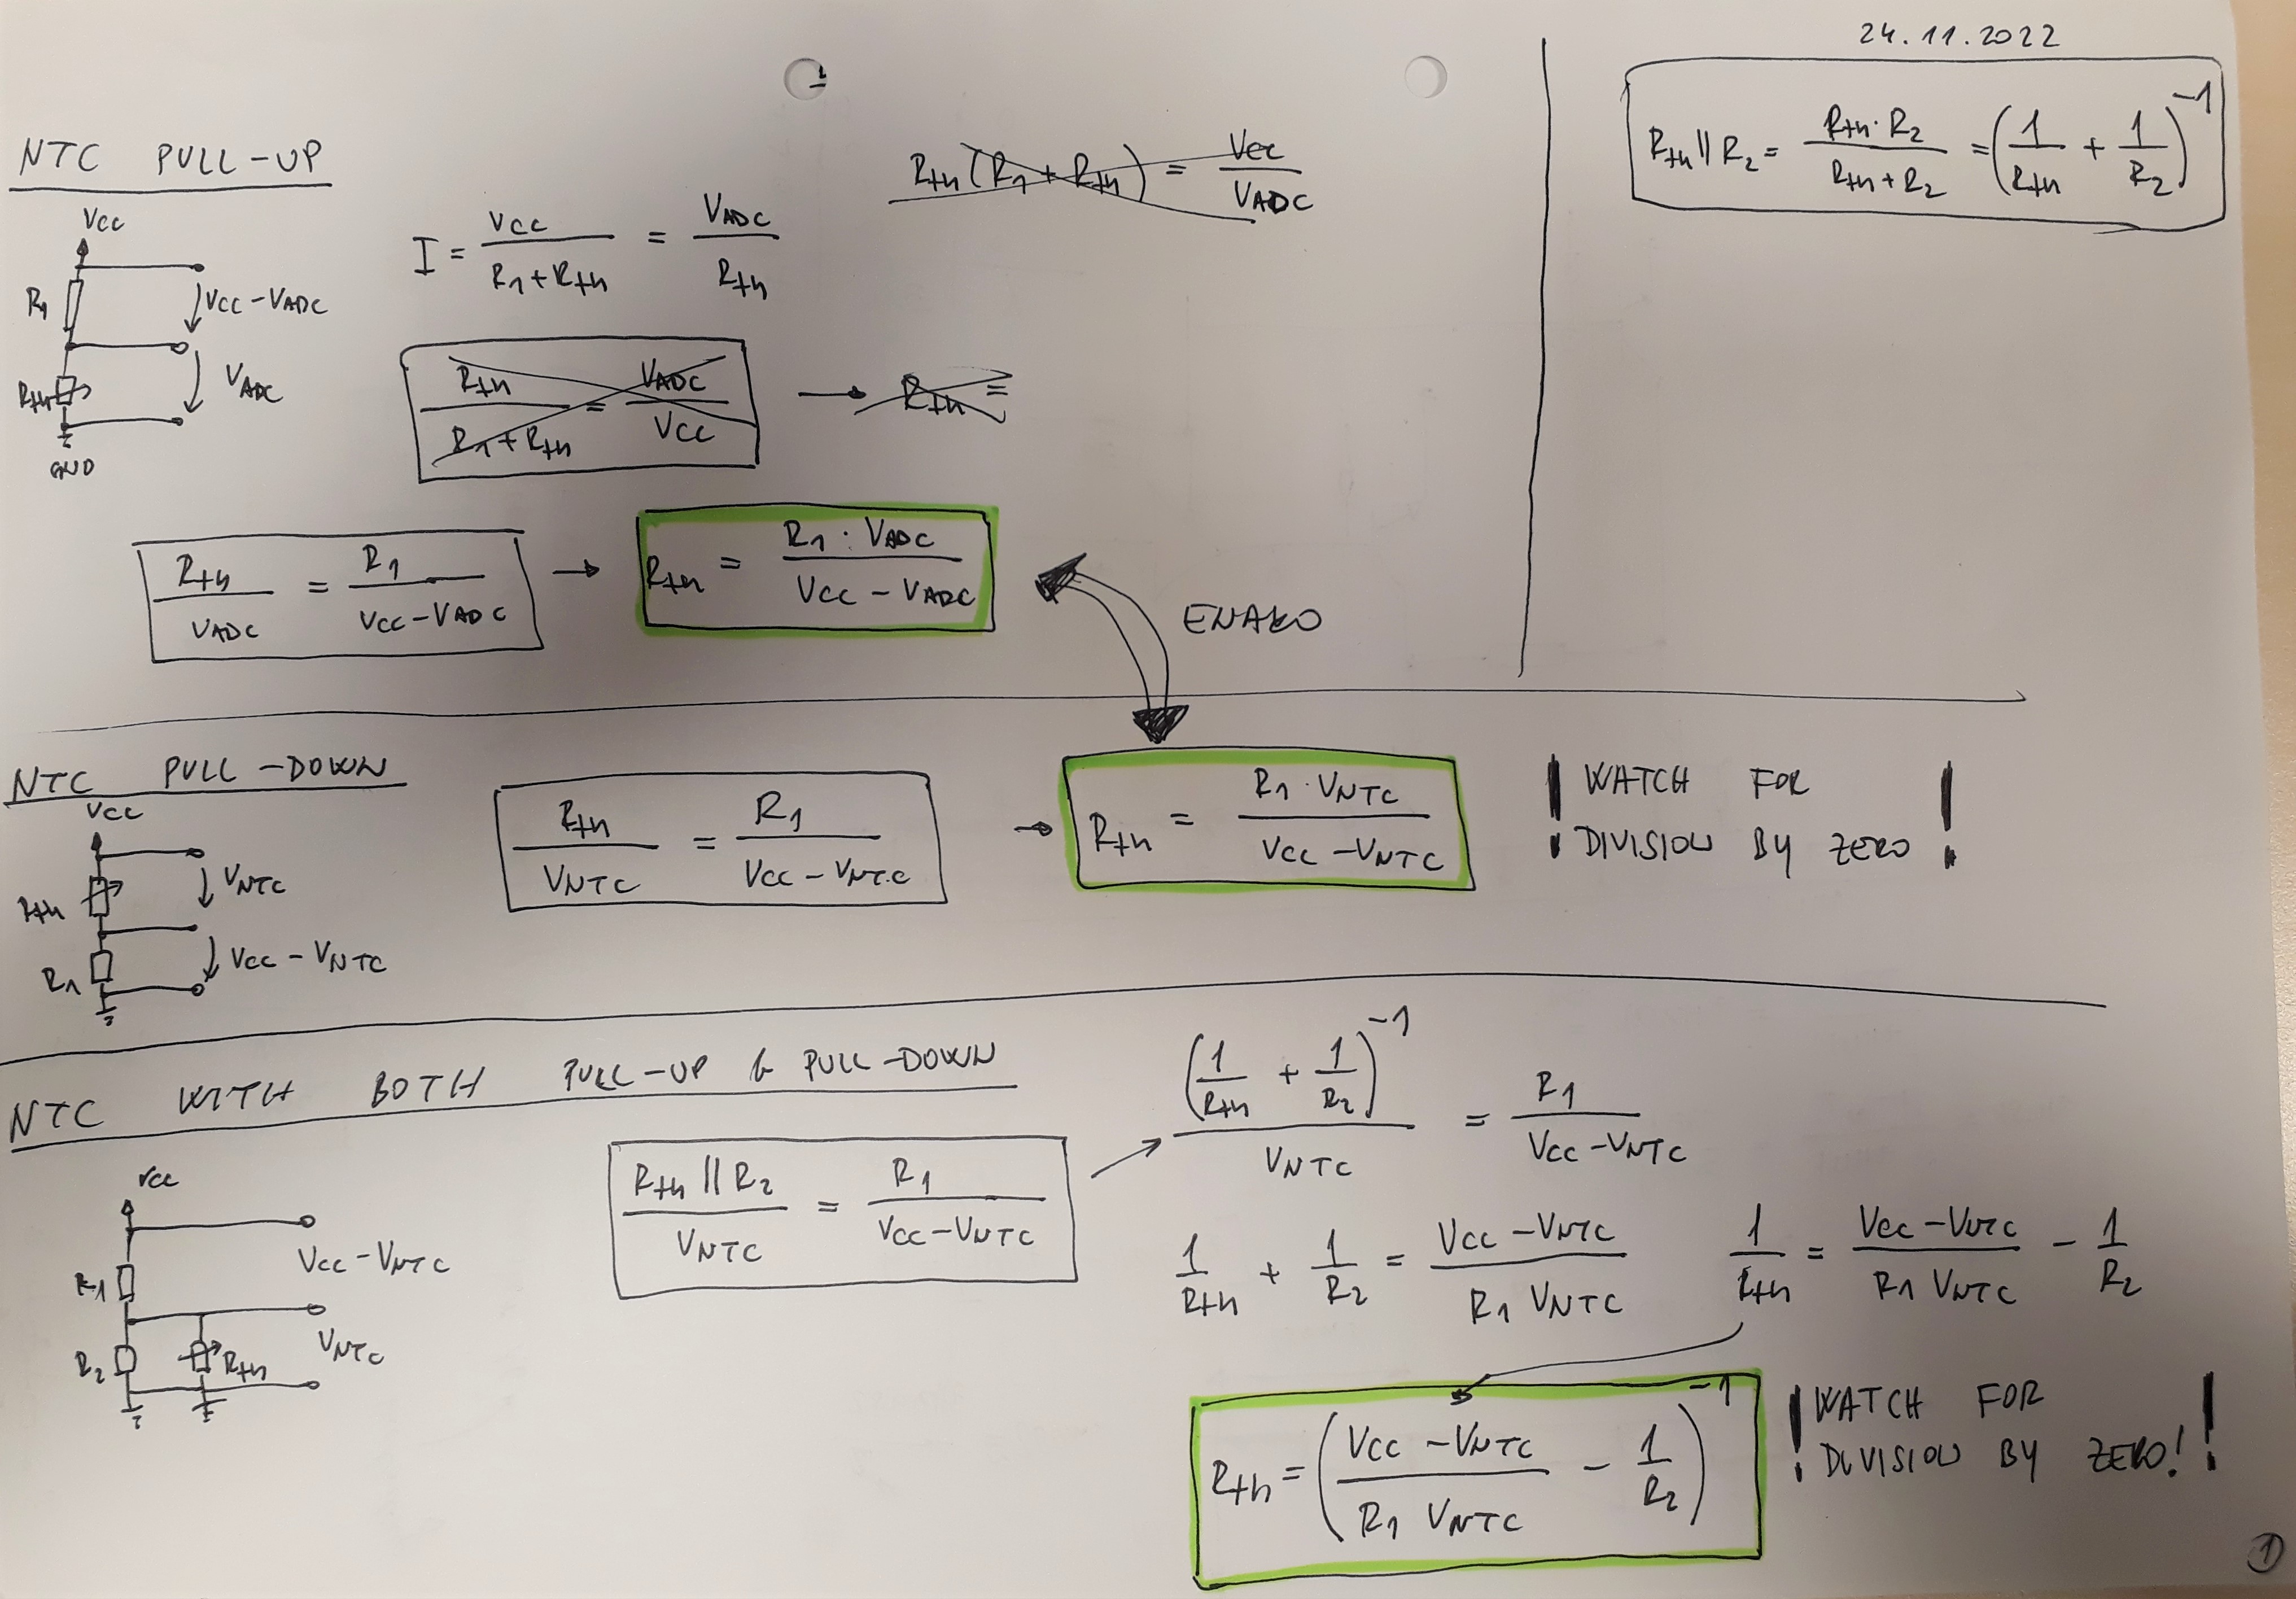 24.11.2022
R_th || R_2 = (R_th · R_2)/(R_th + R_2) = (1/R_th + 1/R_2)^-1
1
NTC PULL-UP
VCC
R_1
VCC - V_ADC
R_th
V_ADC
GND
I = VCC/(R_1 + R_th) = V_ADC/R_th
R_th (R_1 + R_th) = VCC/V_ADC
R_th/(R_1 + R_th) = V_ADC/VCC → R_th =
R_th/V_ADC = R_1/(VCC - V_ADC) → R_th = (R_1 · V_ADC)/(VCC - V_ADC)
ENAKO
NTC PULL-DOWN
VCC
R_th
V_NTC
R_1
VCC - V_NTC
R_th/V_NTC = R_1/(VCC - V_NTC) → R_th = (R_1 · V_NTC)/(VCC - V_NTC)
! WATCH FOR !
DIVISION BY ZERO
NTC WITH BOTH PULL-UP & PULL-DOWN
VCC
VCC - V_NTC
R_1
V_NTC
R_2
R_th
(R_th || R_2)/V_NTC = R_1/(VCC - V_NTC) → (1/R_th + 1/R_2)^-1/V_NTC = R_1/(VCC - V_NTC)
1/R_th + 1/R_2 = (VCC - V_NTC)/(R_1 V_NTC)
1/R_th = (VCC - V_NTC)/(R_1 V_NTC) - 1/R_2
R_th = ((VCC - V_NTC)/(R_1 V_NTC) - 1/R_2)^-1
! WATCH FOR !
DIVISION BY ZERO!
1